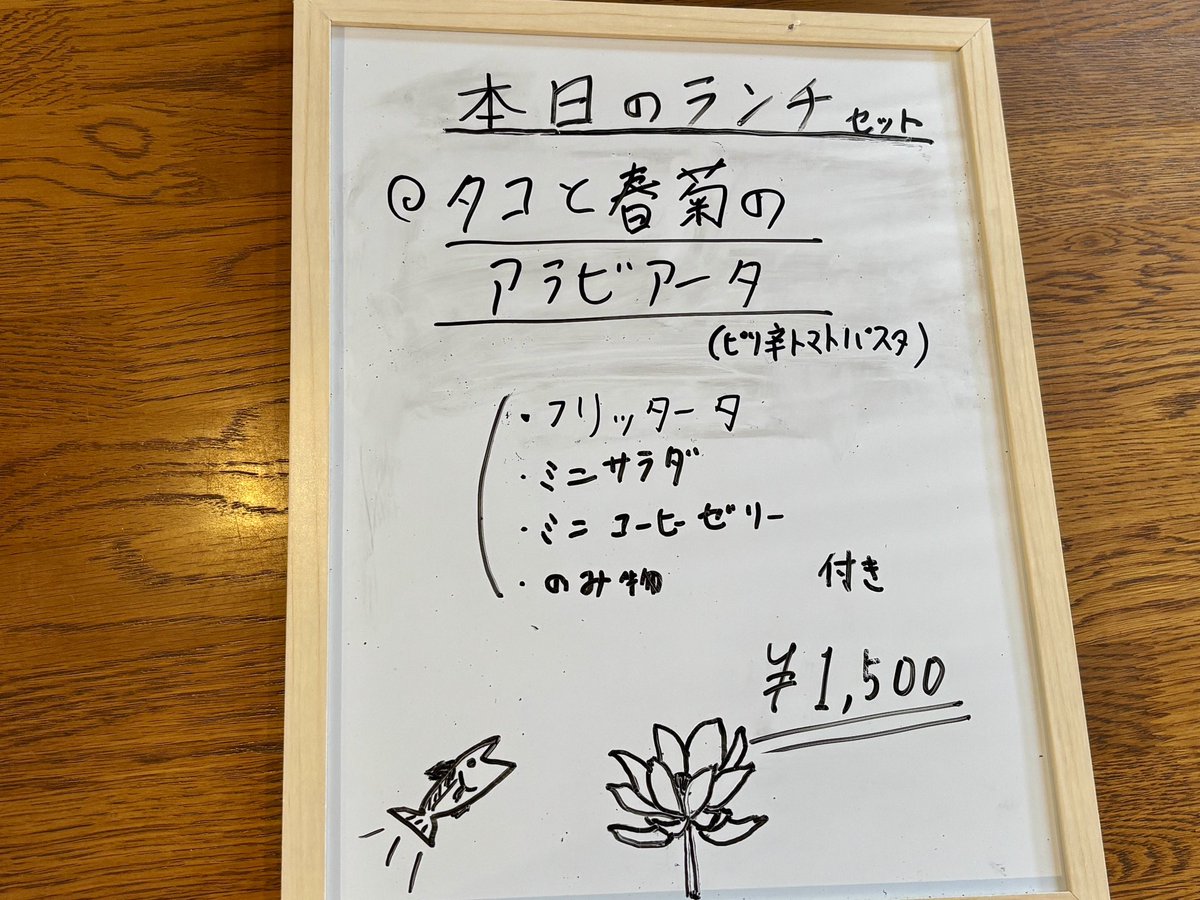 本日のランチ セット
タコと春菊の
アラビアータ
(ピリ辛トマトパスタ)
・フリッタータ
・ミニサラダ
・ミニコーヒーゼリー
・のみ物 付き
¥1,500